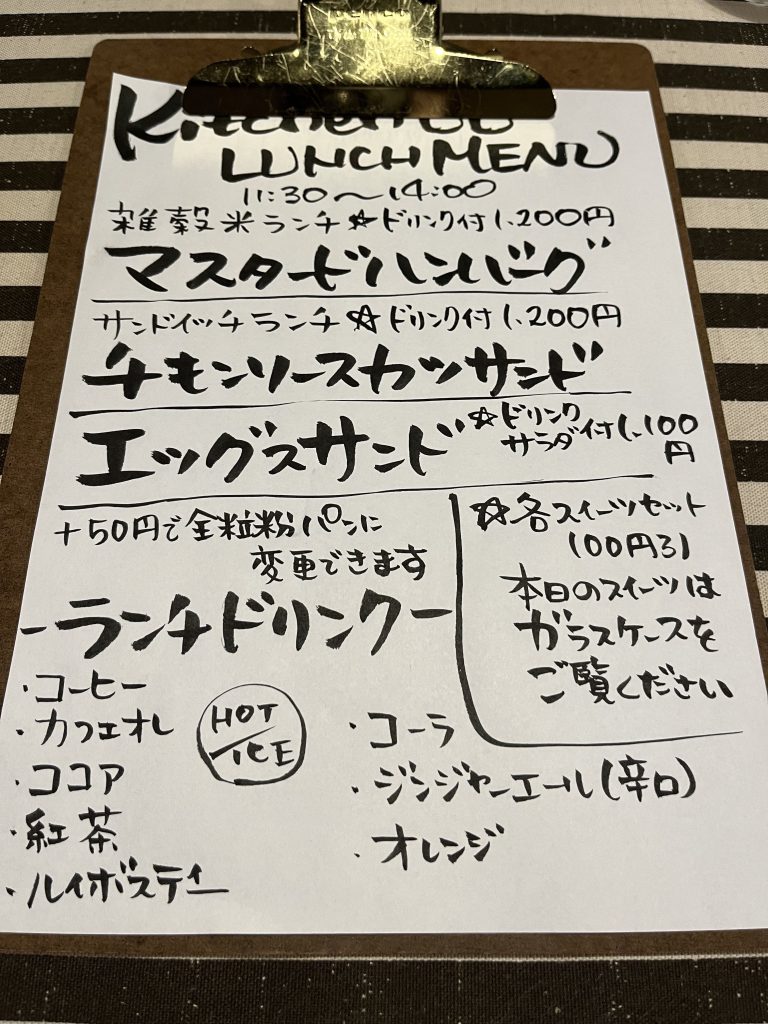 LUNCH MENU
11:30〜14:00
雑穀米ランチ☆ドリンク付1,200円
マスタードハンバーグ
サンドイッチランチ☆ドリンク付1,200円
チキンソースカツサンド
エッグスサンド
☆ドリンク
サラダ付1,100
円
+50円で全粒粉パンに
変更できます
☆各スイーツセット
100円引
本日のスイーツは
ガラスケースを
ご覧ください
-ランチドリンク-
・コーヒー
・カフェオレ
・ココア
・紅茶
・ルイボスティー
HOT
/ICE
・コーラ
・ジンジャーエール(辛口)
・オレンジ